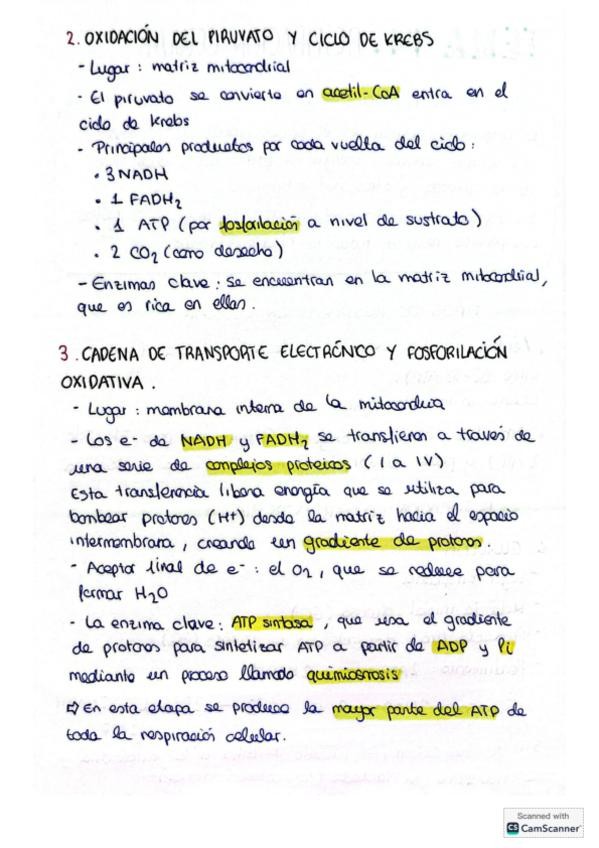 2. OXIDACIÓN DEL PIRUVATO Y CICLO DE KREBS
- Lugar : matriz mitocondrial
- El piruvato se convierte en acetil-CoA entra en el
ciclo de Krebs
- Principales productos por cada vuelta del ciclo :
• 3 NADH
• 1 FADH₂
• 1 ATP (por fosforilación a nivel de sustrato)
• 2 CO₂ (como desecho)
- Enzimas clave : se encuentran en la matriz mitocondrial,
que es rica en ellas.
3. CADENA DE TRANSPORTE ELECTRÓNICO Y FOSFORILACIÓN
OXIDATIVA.
- Lugar : membrana interna de la mitocondria
- Los e- de NADH y FADH₂ se transfieren a través de
una serie de complejos proteicos ( I a IV)
Esta transferencia libera energía que se utiliza para
bombear protones (H+) desde la matriz hacia el espacio
intermembrana, creando un gradiente de protones.
- Aceptor final de e- : el O₂, que se reduce para
formar H₂O
- La enzima clave: ATP sintasa, que usa el gradiente
de protones para sintetizar ATP a partir de ADP y Pi
mediante un proceso llamado quimiosmosis
⇨ En esta etapa se produce la mayor parte del ATP de
toda la respiración celular.
Scanned with
CS CamScanner